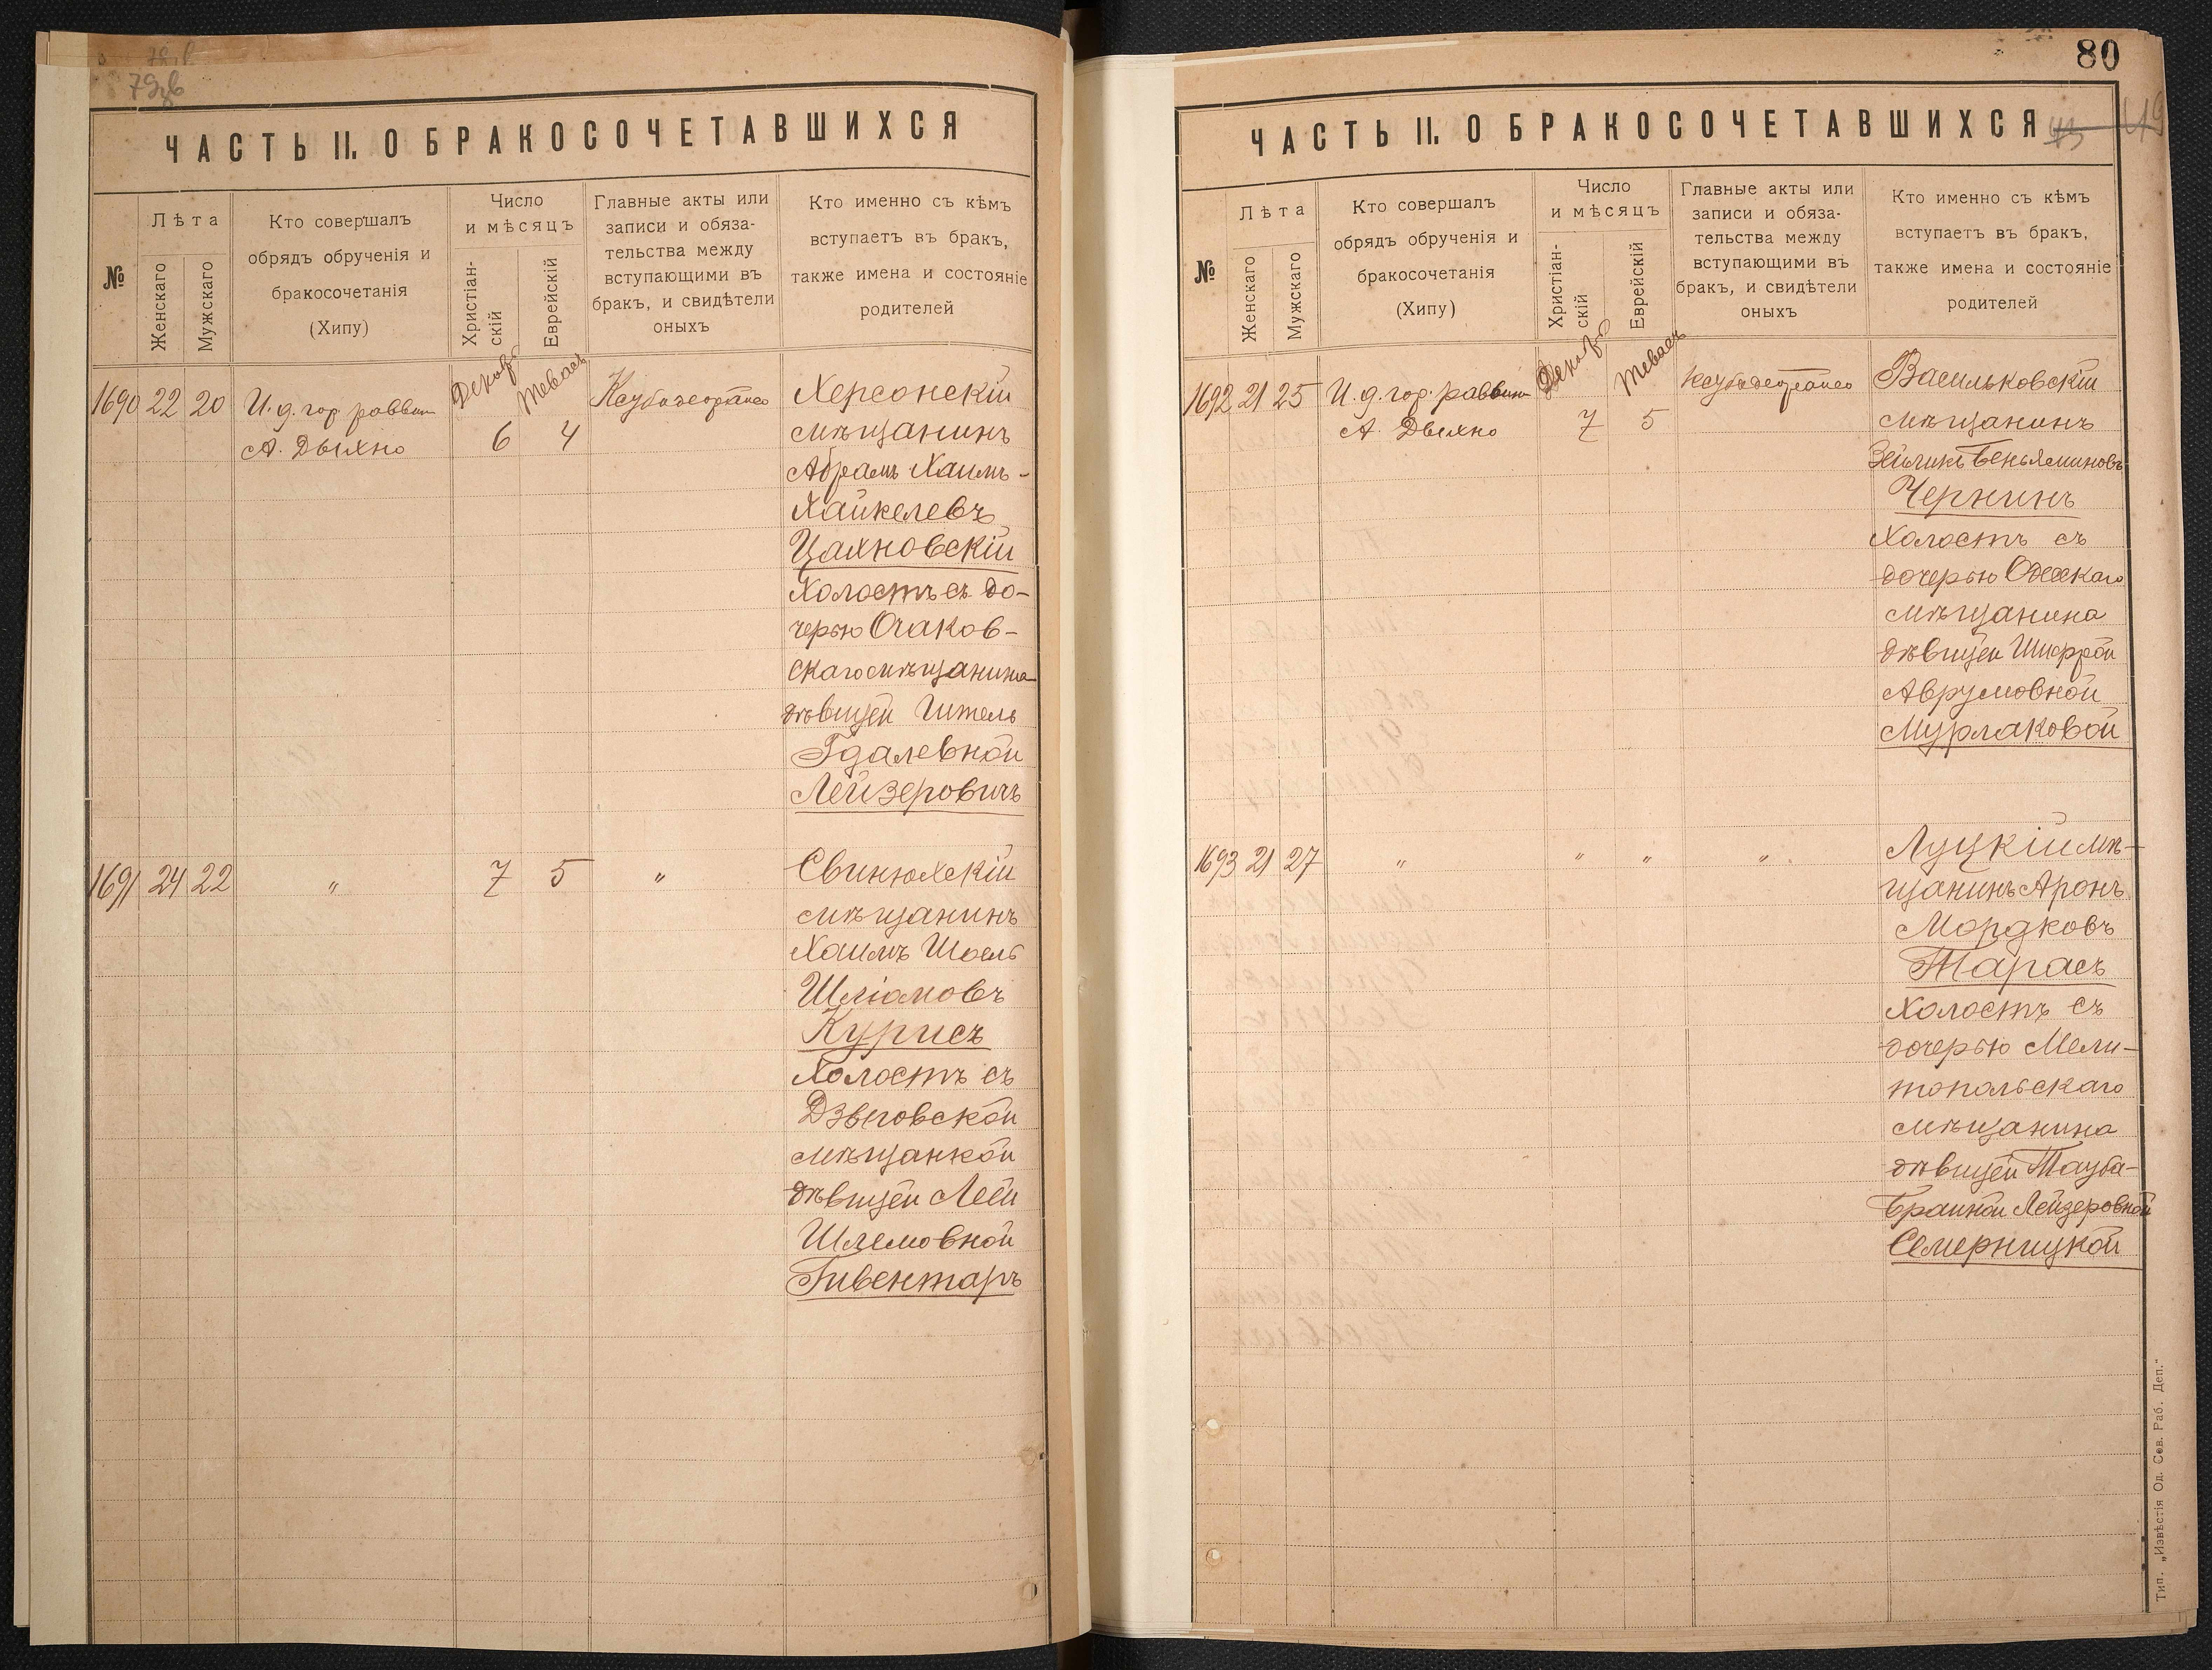 79зв
ЧАСТЬ II. О БРАКОСОЧЕТАВШИХСЯ
№
Лѣта
Женскаго
Мужскаго
Кто совершалъ
обрядъ обрученія и
бракосочетанія
(Хипу)
Число
и мѣсяцъ
Христіан-
скій
Еврейскій
Главные акты или
записи и обяза-
тельства между
вступающими въ
бракъ, и свидѣтели
оныхъ
Кто именно съ кѣмъ
вступаетъ въ бракъ,
также имена и состояніе
родителей
Декаб.
Тевась
1690 22 20 И. д. гор. раввин 6 4
А. Дыхно
Херсонскій
мѣщанинъ
Абрамъ Хаимъ-
Хайкелевъ
Цахновскій
холостъ съ до-
черью Очаков-
скаго мѣщанина
дѣвицей Гитель
Гдалевной
Лейзеровичъ
1691 24 22 " 7 5 "
Свинюхскій
мѣщанинъ
Хаимъ Шоель
Шліомовъ
Курисъ
холостъ съ
Дзыговской
мѣщанкой
дѣвицей Леей
Шлемовной
Гивентаръ
80
ЧАСТЬ II. О БРАКОСОЧЕТАВШИХСЯ
№
Лѣта
Женскаго
Мужскаго
Кто совершалъ
обрядъ обрученія и
бракосочетанія
(Хипу)
Число
и мѣсяцъ
Христіан-
скій
Еврейскій
Главные акты или
записи и обяза-
тельства между
вступающими въ
бракъ, и свидѣтели
оныхъ
Кто именно съ кѣмъ
вступаетъ въ бракъ,
также имена и состояніе
родителей
Декаб.
Тевась
1692 21 25 И. д. гор. раввин 7 5
А. Дыхно
Васильковскій
мѣщанинъ
Зейликъ Беньяминовъ
Чернинъ
холостъ съ
дочерью Одесскаго
мѣщанина
дѣвицей Шифрой
Аврумовной
Мурлаковой
1693 21 27 " " " "
Луцкій мѣ-
щанинъ Аронъ
Мордковъ
Тарасъ
холостъ съ
дочерью Мели-
топольскаго
мѣщанина
дѣвицей Тауба-
Браиной Лейзеровной
Семерницкой
Тип. „Извѣстія Од. Сов. Раб. Деп."